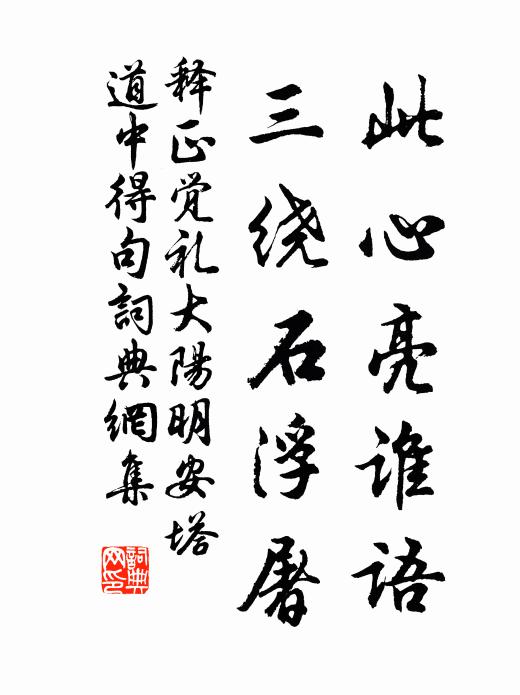 此心亮谁语
三绕石浮屠
释正觉礼大陽明安塔
道中得句詞典網集
詞典网印